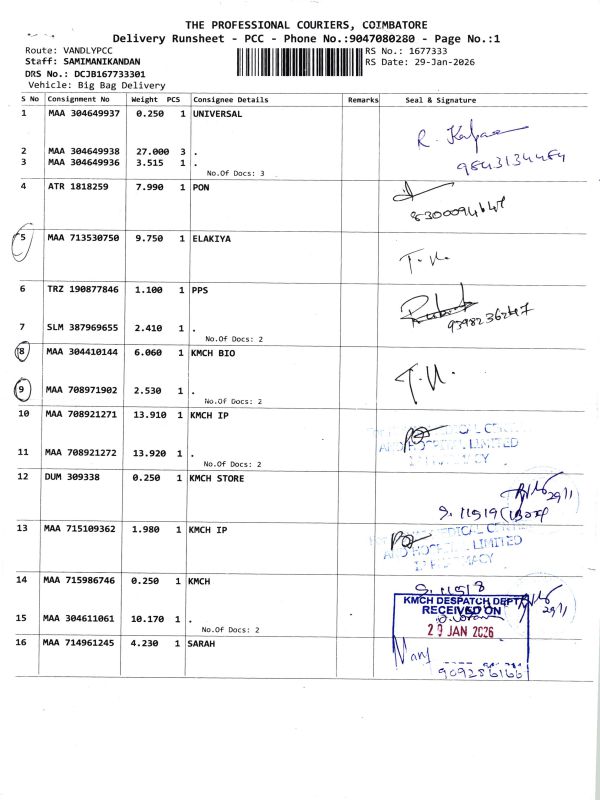 THE PROFESSIONAL COURIERS, COIMBATORE
Delivery Runsheet - PCC - Phone No.:9047080280 - Page No.:1
Route: VANDLYPCC RS No.: 1677333
Staff: SAMIMANIKANDAN RS Date: 29-Jan-2026
DRS No.: DCJB167733301
Vehicle: Big Bag Delivery
S No Consignment No Weight PCS Consignee Details Remarks Seal & Signature
1 MAA 304649937 0.250 1 UNIVERSAL
2 MAA 304649938 27.000 3 .
3 MAA 304649936 3.515 1 .
No.Of Docs: 3
9843134484
4 ATR 1818259 7.990 1 PON
5 MAA 713530750 9.750 1 ELAKIYA
6 TRZ 190877846 1.100 1 PPS
9398236247
7 SLM 387969655 2.410 1 .
No.Of Docs: 2
8 MAA 304410144 6.060 1 KMCH BIO
9 MAA 708971902 2.530 1 .
No.Of Docs: 2
10 MAA 708921271 13.910 1 KMCH IP
AND HOSPITAL LIMITED
11 MAA 708921272 13.920 1 .
No.Of Docs: 2
12 DUM 309338 0.250 1 KMCH STORE
29/1
13 MAA 715109362 1.980 1 KMCH IP
AND HOSPITAL LIMITED
14 MAA 715986746 0.250 1 KMCH
KMCH DESPATCH DEPT
RECEIVED ON
29/1
15 MAA 304611061 10.170 1 .
No.Of Docs: 2
29 JAN 2026
16 MAA 714961245 4.230 1 SARAH